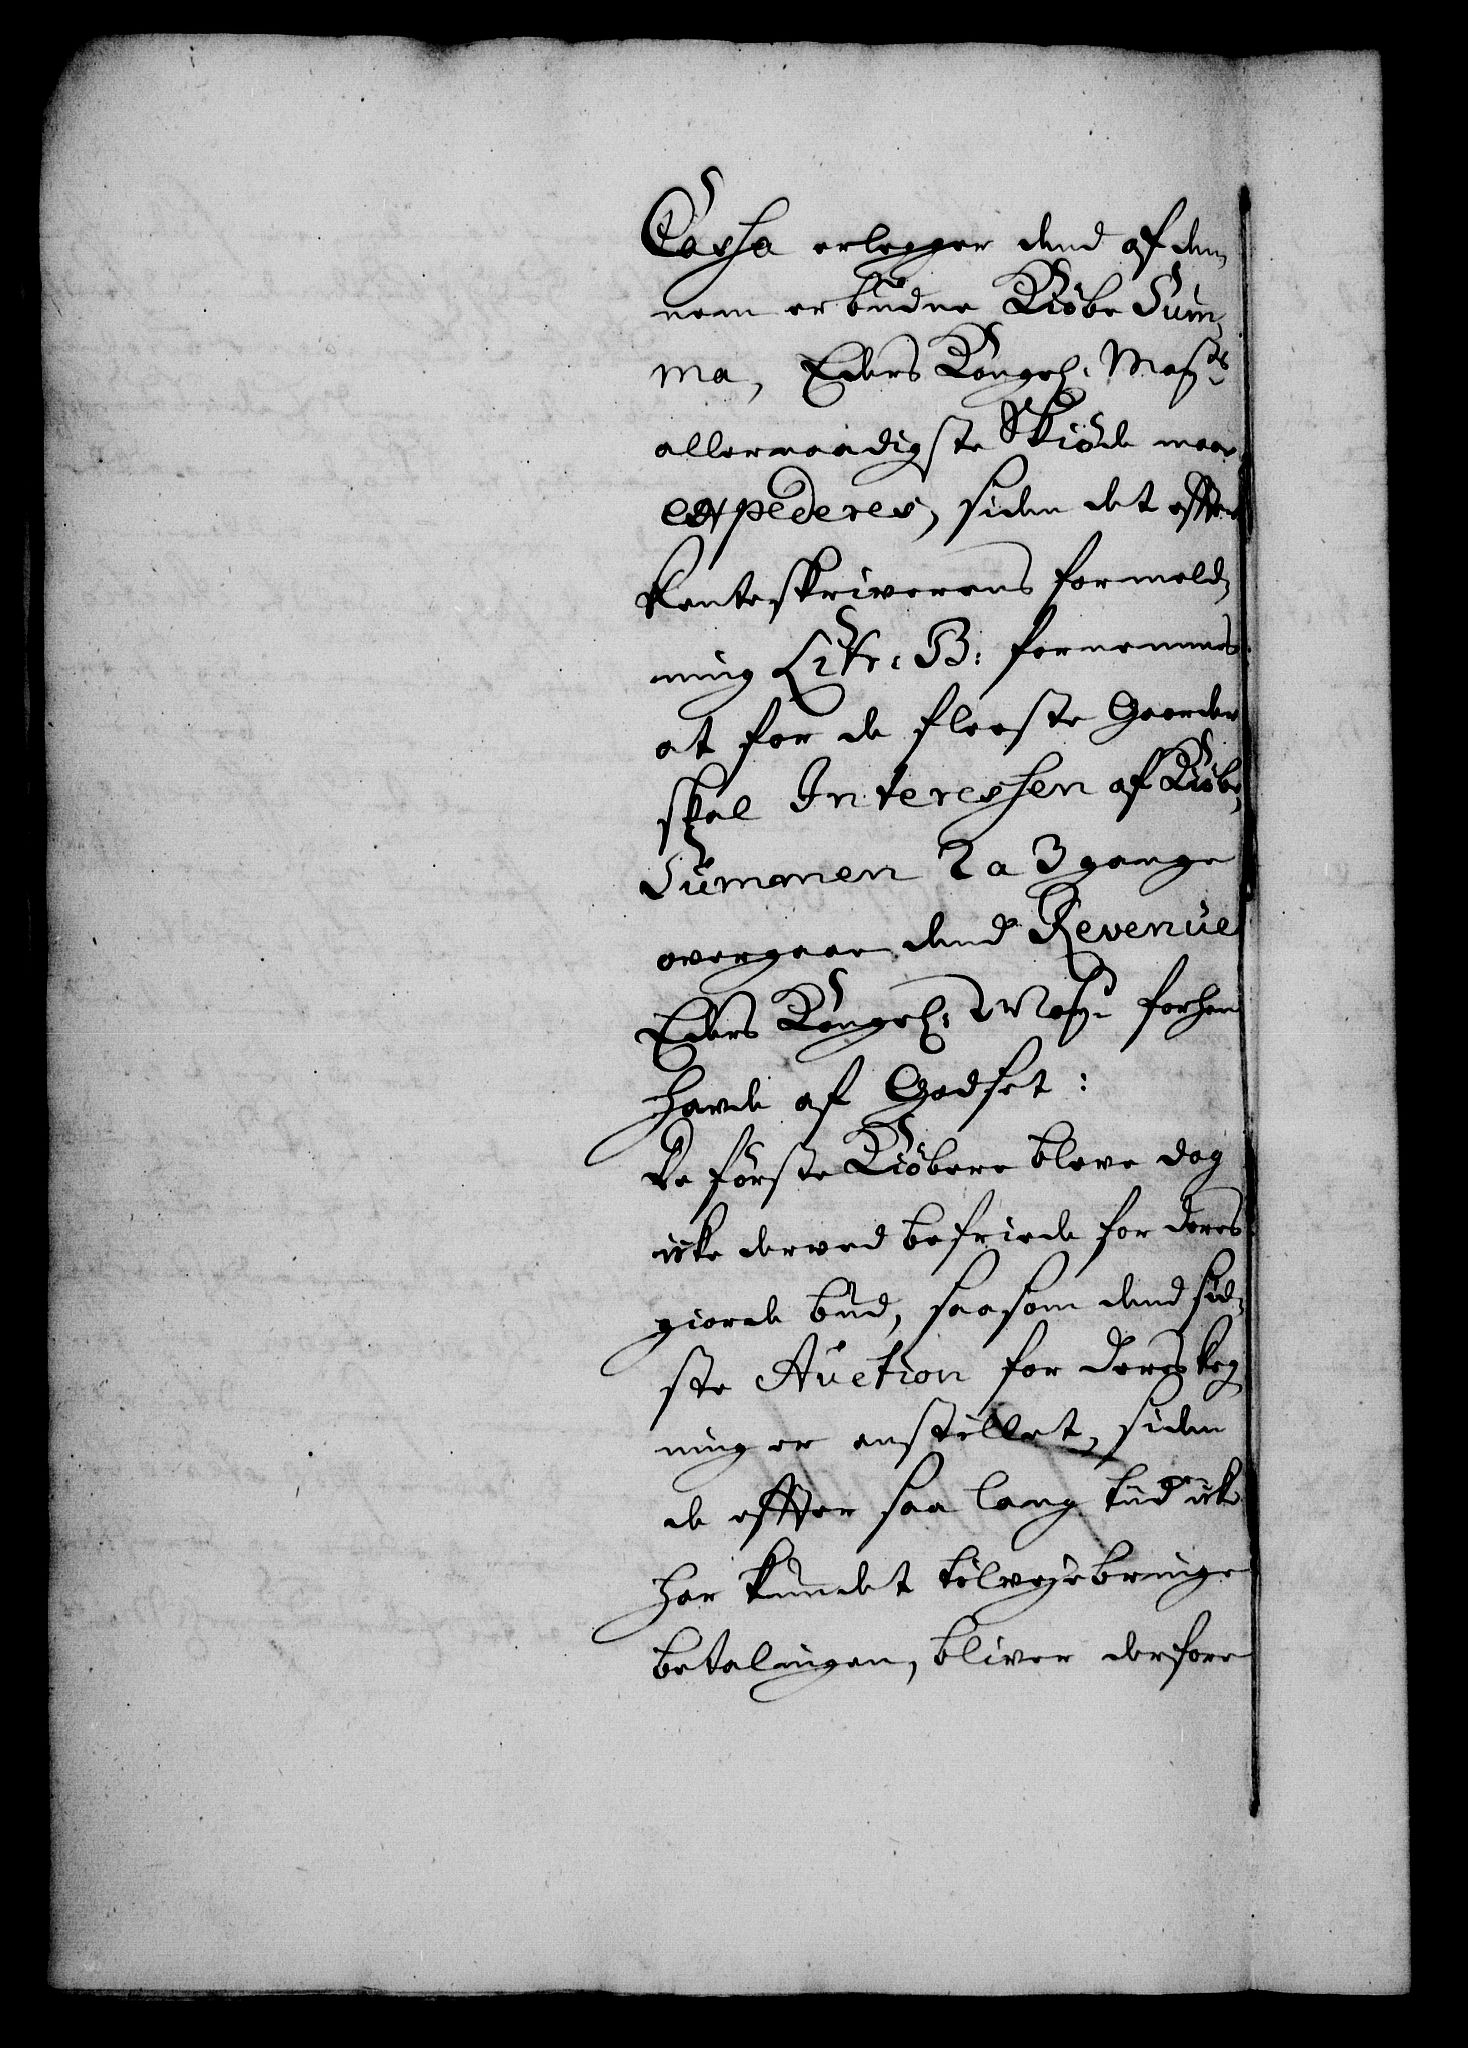 Cassa erlegger dend af den,
nem erbudne Kiöbe Sum,
ma, Eders Kongel: Mayts
allernaadigste Skiöde maa
expederes, siden det effter
Renteskriverens formeld,
ning Litr: B: fornemmes
at for de fleeste Gaarder
skal Interessen af Kiöbe,
Summen 2 a 3 gange
overgaae dend Revenüe
Eders Kongel: May: forhen
havde af Godset:
De förste Kiöbere bleve dog
icke derved befriede for deres
giorde bud, saasom dend sid,
ste Auction for deres Reg,
ning er anstillet, siden
de effter saa lang tiid icke
har kundet tilvejebringe
betalingen, bliver derfore